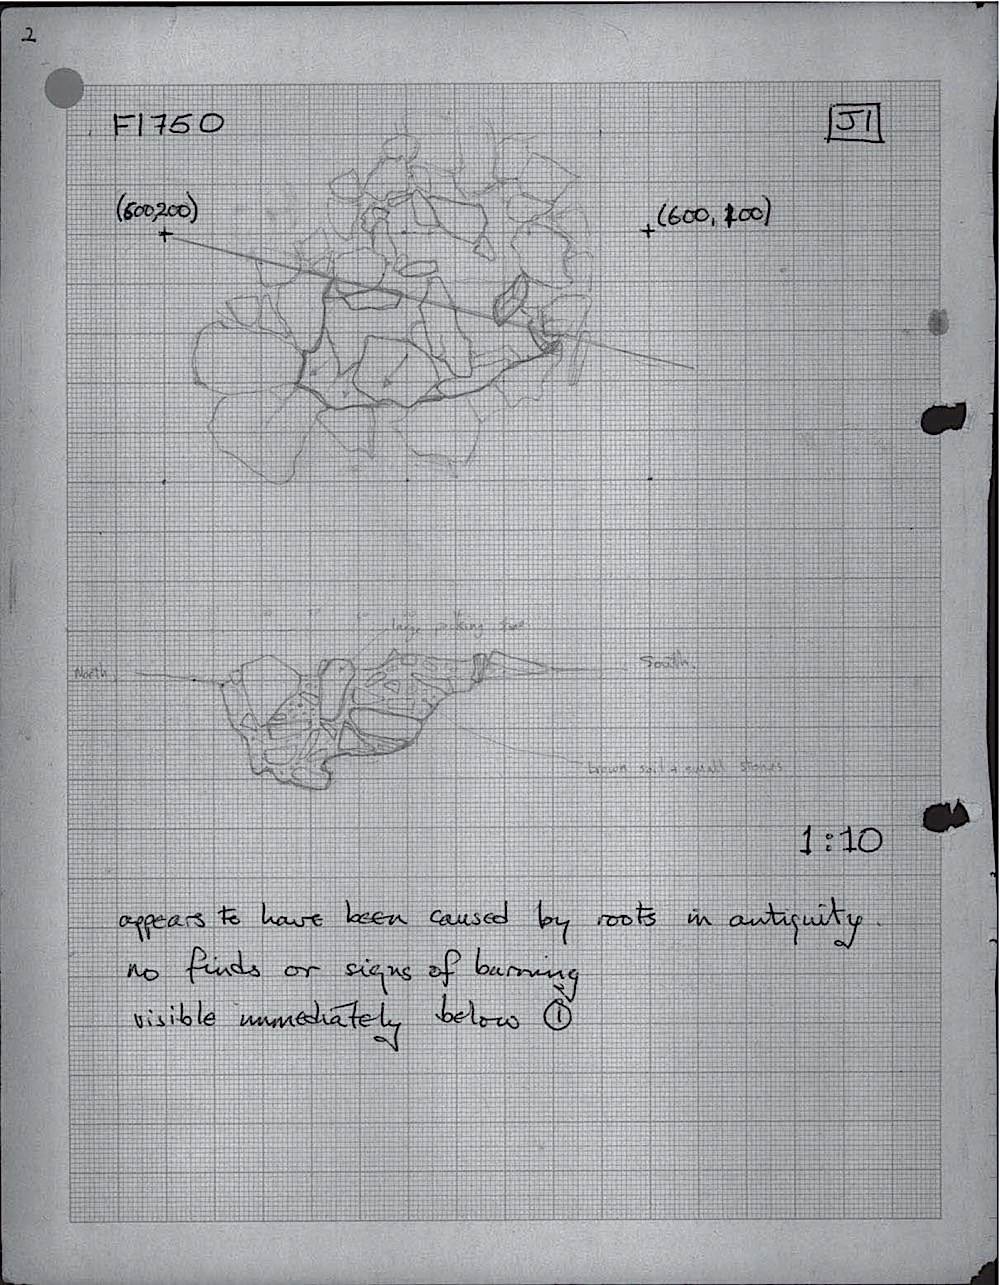 2
F1750
J1
(600,200)
(600, 100)
large packing stone
North
South
brown soil + small stones
1:10
appears to have been caused by roots in antiquity.
no finds or signs of burning
visible immediately below ①